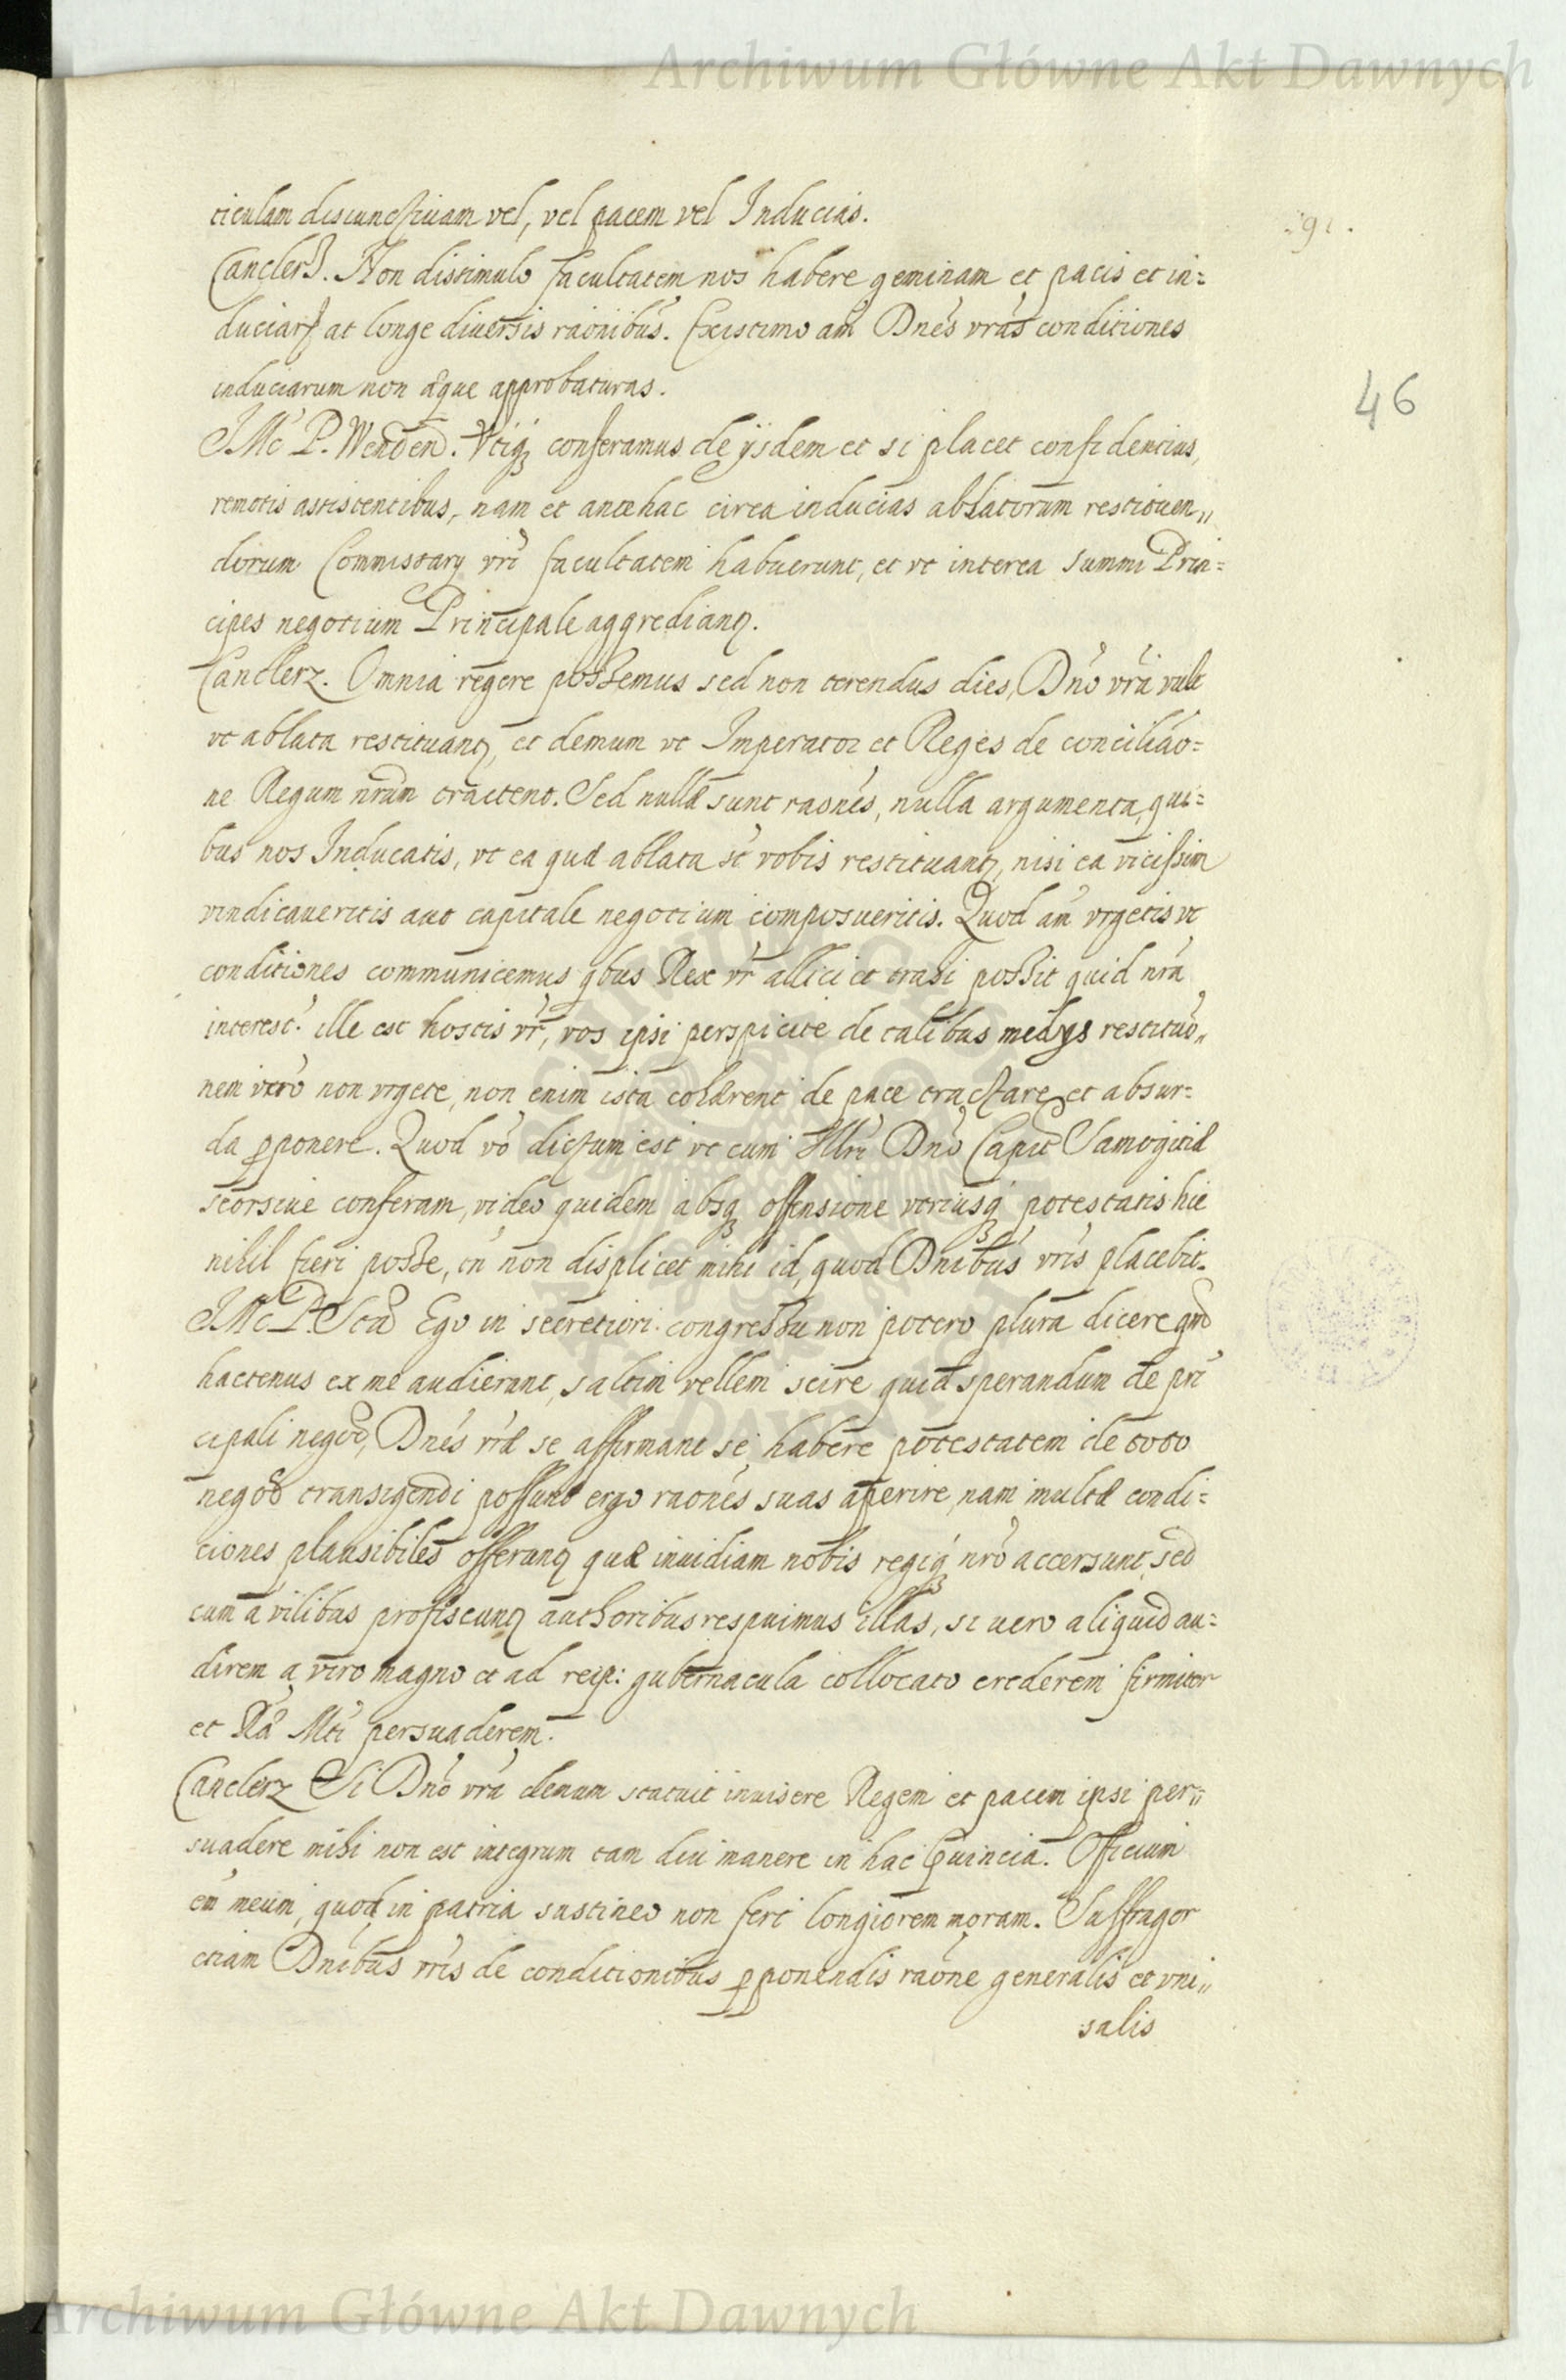 Archiwum Główne Akt Dawnych
ticulam disiunctiuam vel, vel pacem vel Inducias.
91.
Canclerz. Non dissimulo facultatem nos habere geminam et pacis et in=
duciarū at longe diuersis raōnibus. Existimo aūt Dnēs vrās conditiones
induciarum non æque approbaturas.
46
JMć P. Wenden. Vtiqȝ conferamus de ijsdem et si placet confidentius,
remotis assistentibus, nam et antehac circa inducias ablatorum restituen„
dorum Commissarÿ vrī facultatem habuerunt, et vt interea summi Prin=
cipes negotium Principale aggrediantꝛ.
Canclerz. Omnia regere possemus sed non terendus dies, Dnō vrā vult
vt ablata restituantꝛ, et demum vt Imperator et Reges de conciliaō=
ne Regum nrūm tractent. Sed nullæ sunt raōnes, nulla argumenta, qui=
bus nos Inducatis, vt ea quæ ablata st̄ vobis restituantꝛ, nisi ea vicissim
vindicaueritis aut capitale negotium composueritis. Quod aūt vrgetis vt
conditiones communicemus qbus Rex vr̄ allici et trahi possit quid nrā
interest. ille est hostis vr̄, vos ipsi perspicite de talibus medys restituō„
nem vero non vrgete, non enim ista cohærent de pace tractare et absur=
da ꝓponere. Quod vō dictum est vt cum Illrī Dnō Capit Samogitiæ
seorsiue conferam, video quidem absqȝ offensione vtriusqȝ potestatis hic
nihil fieri posse, tn̄ non displicet mihi id, quod Dnībus vrīs placebit.
JMć P. Ego in secretiori congressu non potero plura dicere qd
hactenus ex me audierunt, saltim vellem scire quid sperandum de prī
cipali negō, Dnēs vrǣ se affirmant se habere potestatem de toto
negō transigendi possunt ergo raōnes suas aperire, nam multæ condi=
tiones plausibiles offeruntꝛ quæ inuidiam nobis regiqȝ nrō accersunt, sed
cum a vilibus profiscuntꝛ authoribus respuimus illas, si uero aliquid au=
direm a viro magno et ad reip: gubernacula collocato crederem firmiter
et Rǣ Mtī persuaderem.
Canclerz Si Dnō vrā demum statuit inuisere Regem et pacem ipsi per„
suadere mihi non est integrum tam diu manere in hac ꝓuincia. Officium
em̄ meum, quod in patria sustineo non fert longiorem moram. Suffragor
etiam Dnībus vrīs de conditionibus ꝓponendis raōne generalis et vni„
salis
Archiwum Główne Akt Dawnych